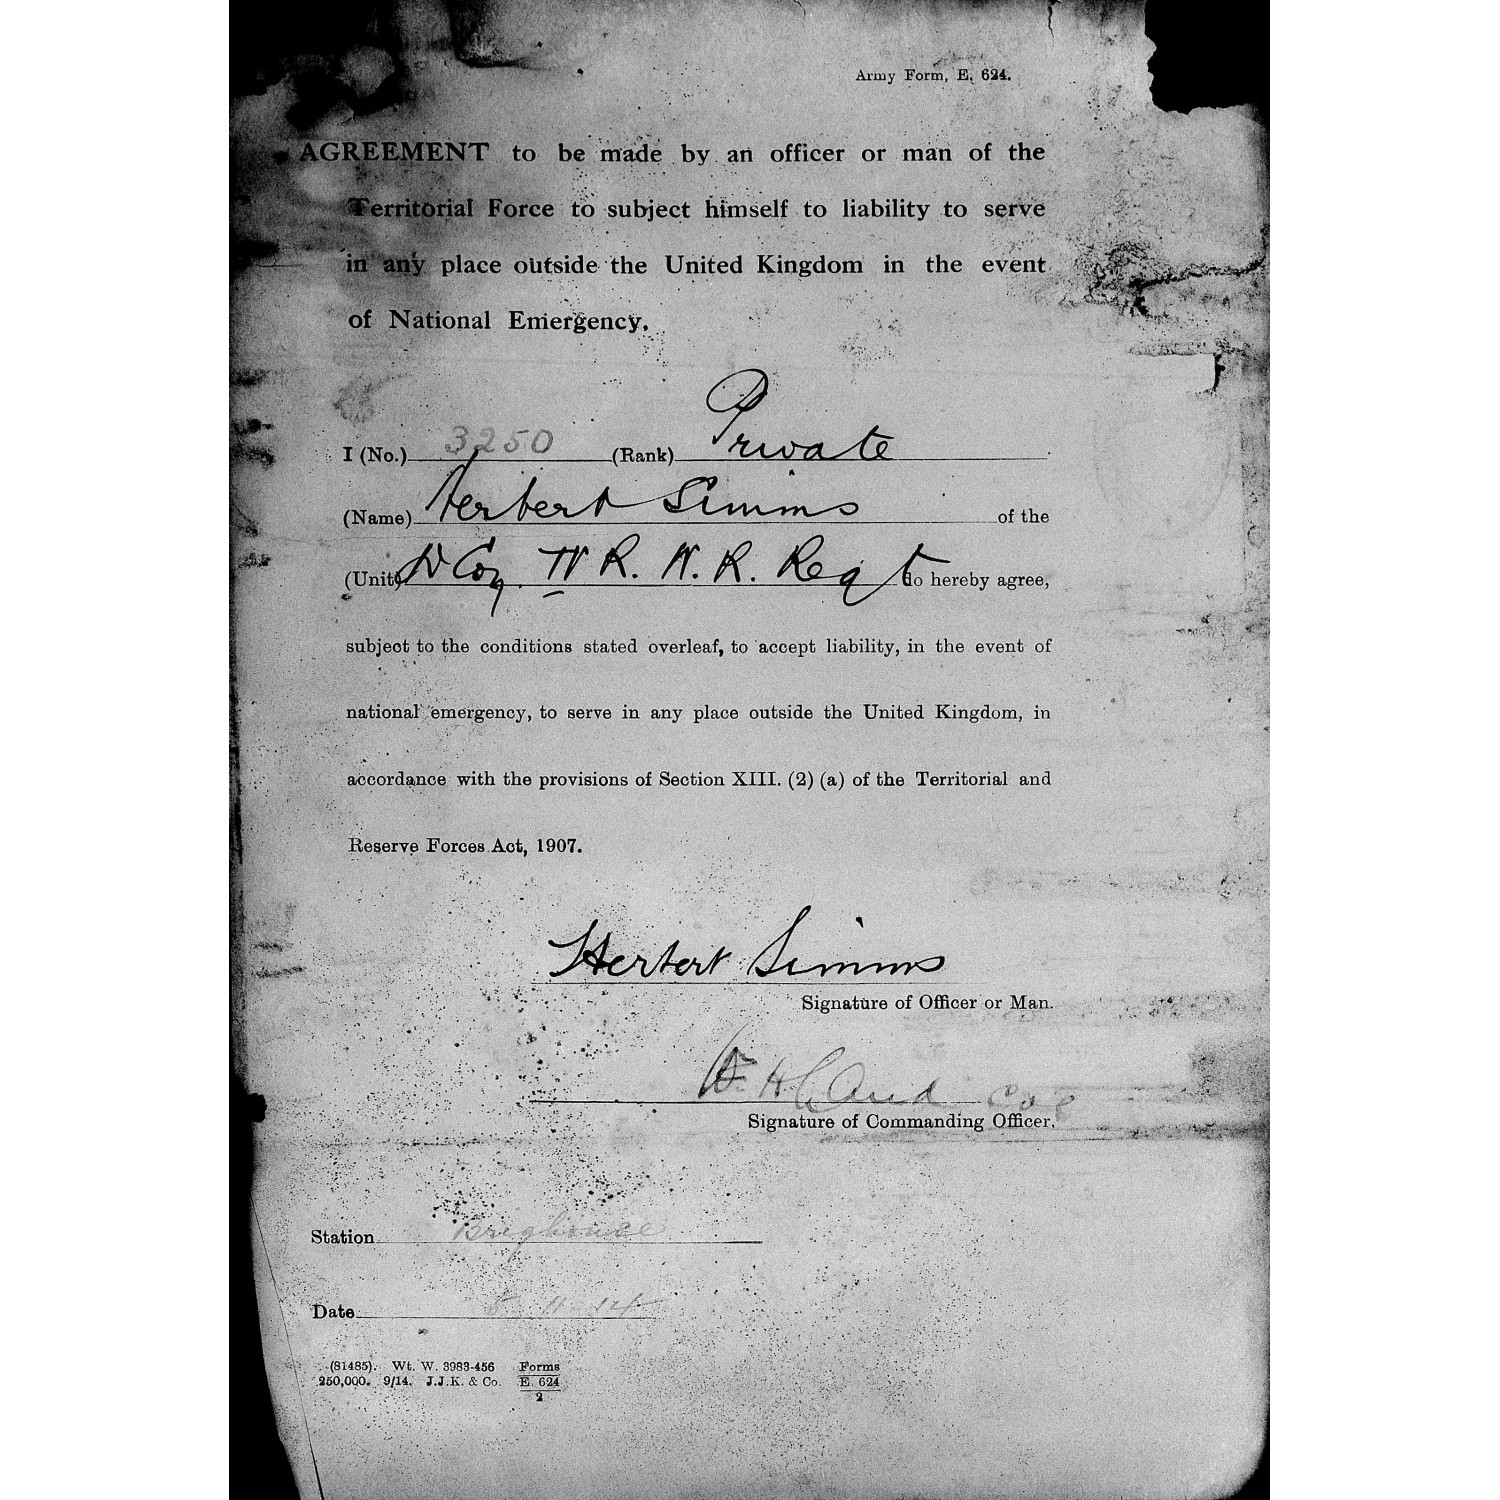 Army Form, E. 624.
AGREEMENT to be made by an officer or man of the
Territorial Force to subject himself to liability to serve
in any place outside the United Kingdom in the event
of National Emergency.
I (No.) 3250 (Rank) Private
(Name) Herbert Simms of the
(Unit) D Coy W R. W. R. Regt do hereby agree,
subject to the conditions stated overleaf, to accept liability, in the event of
national emergency, to serve in any place outside the United Kingdom, in
accordance with the provisions of Section XIII. (2) (a) of the Territorial and
Reserve Forces Act, 1907.
Herbert Simms
Signature of Officer or Man.
Signature of Commanding Officer.
Station Brighouse
Date 5 11 14
(81485). Wt. W. 3983-456 Forms
250,000. 9/14. J.J.K. & Co. E. 624
2